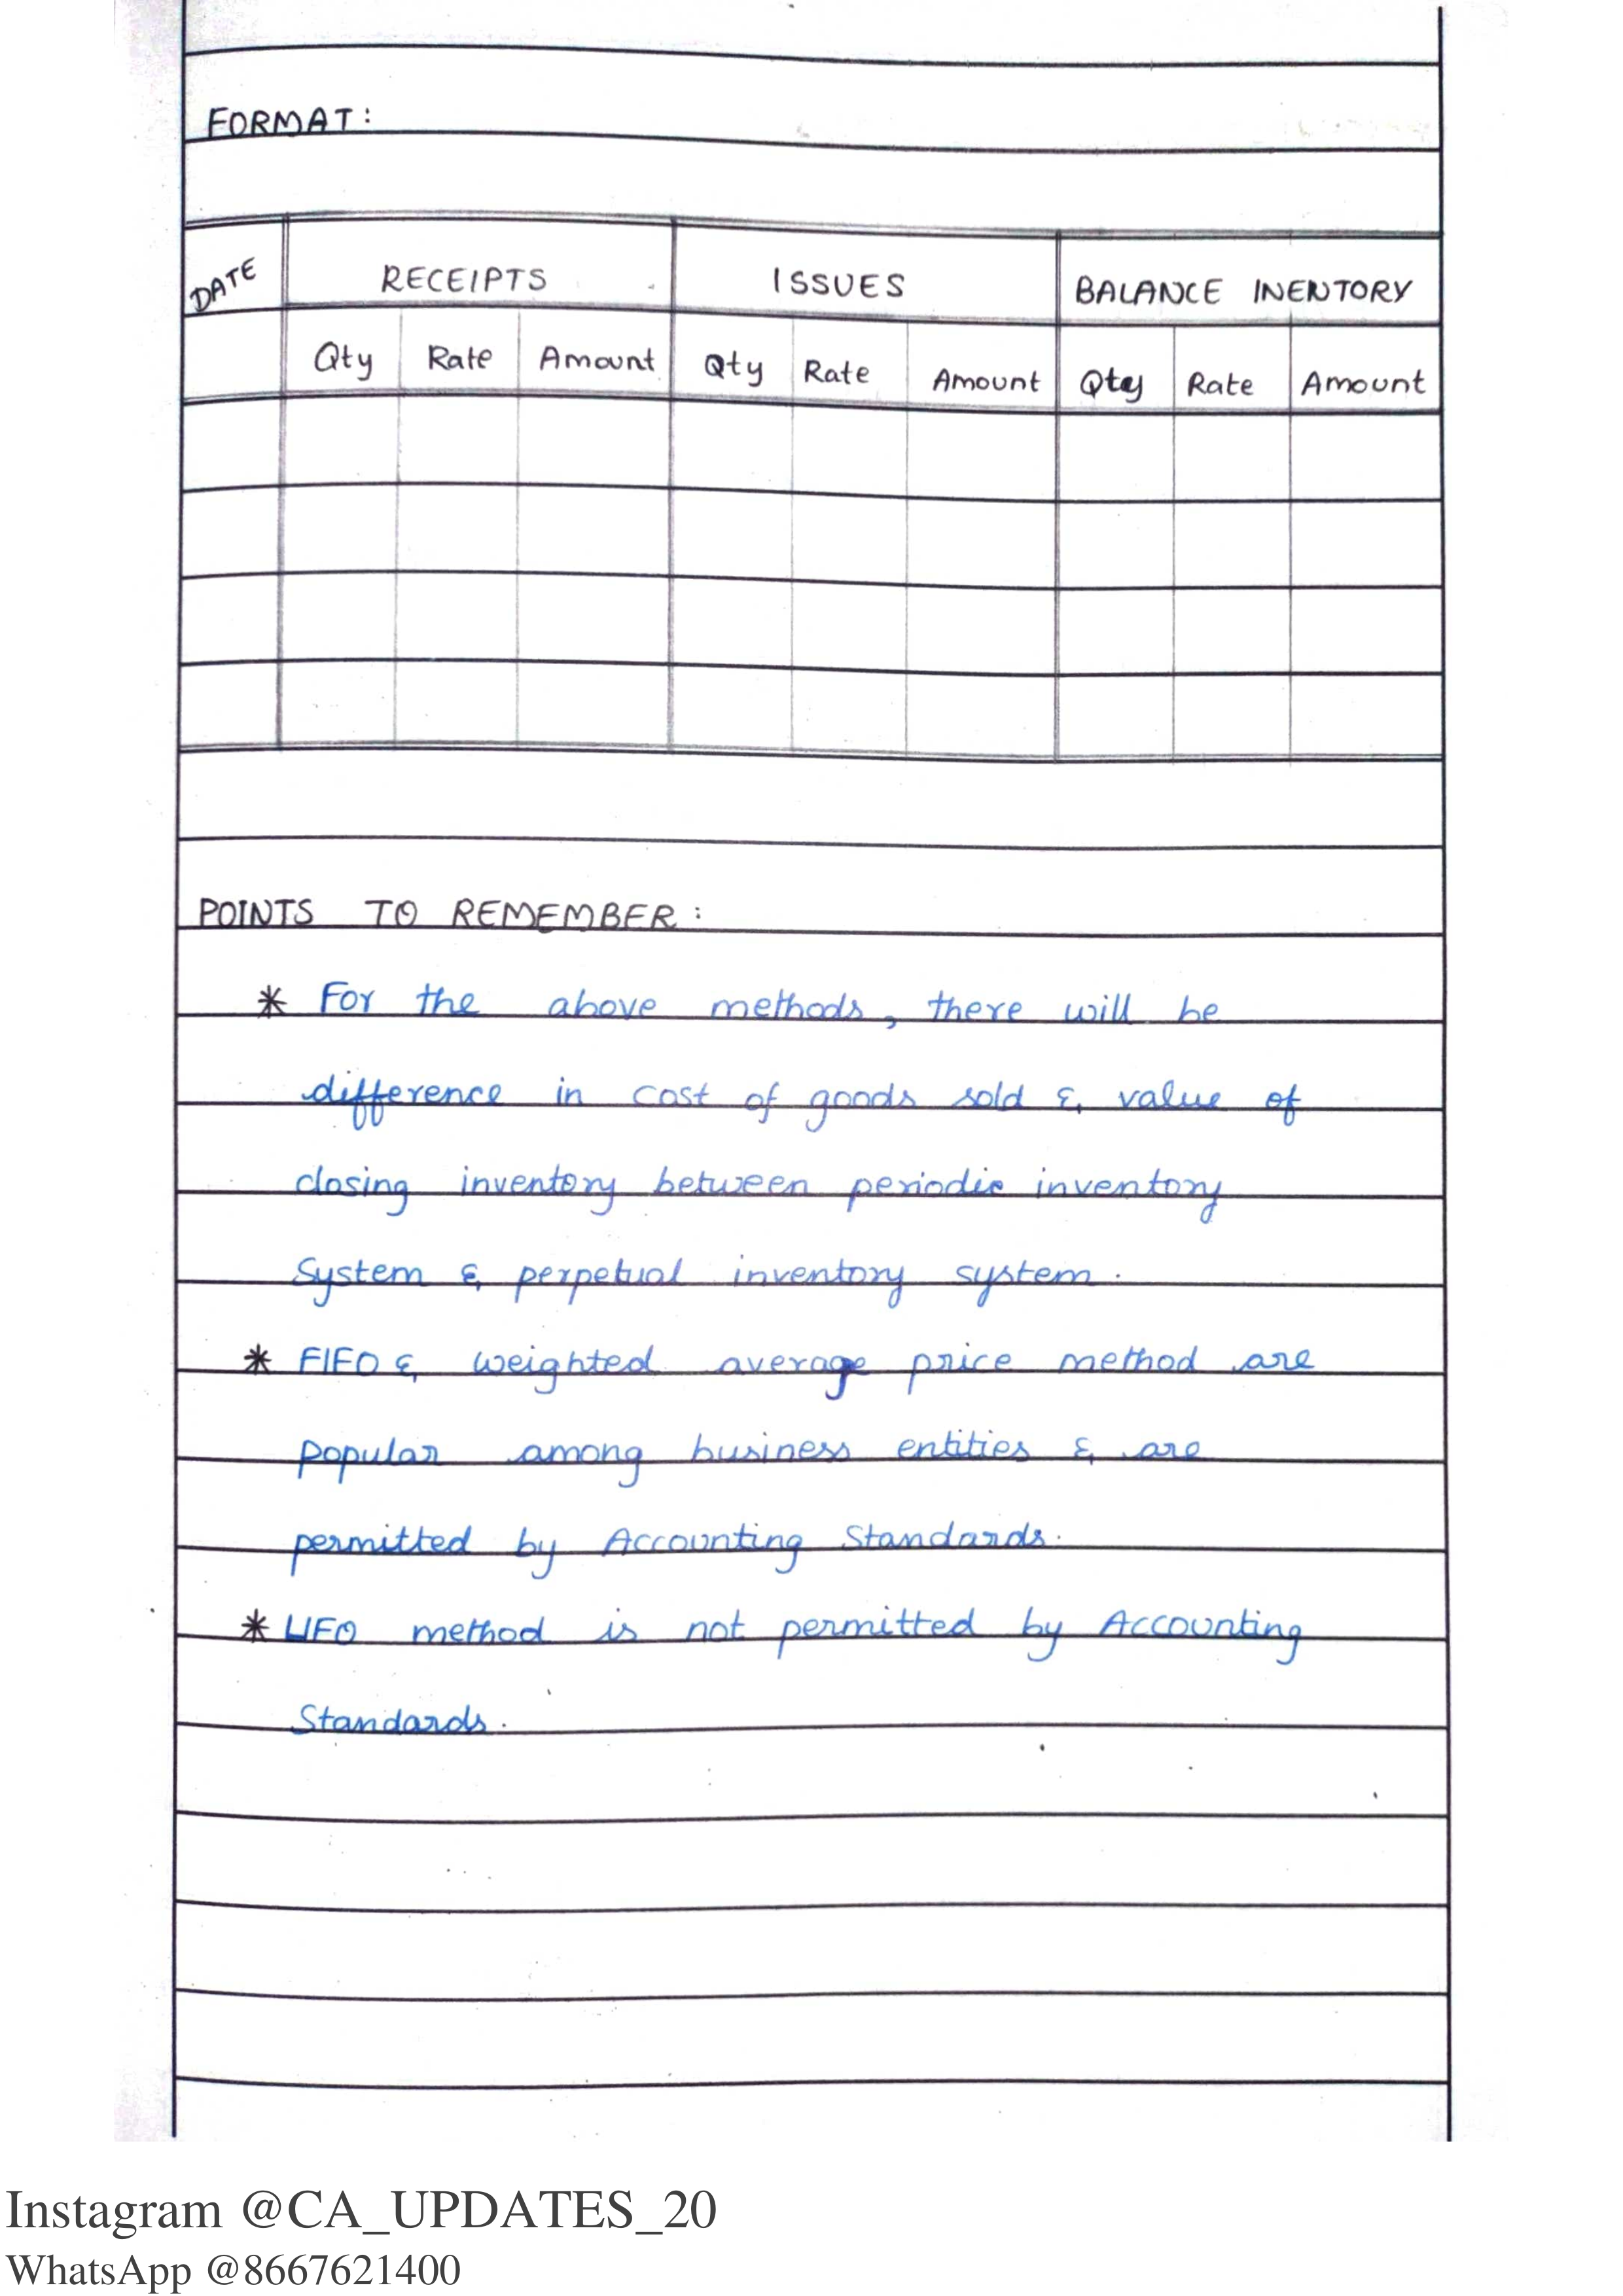 FORMAT:
DATE RECEIPTS ISSUES BALANCE INENTORY
Qty Rate Amount Qty Rate Amount Qty Rate Amount
POINTS TO REMEMBER:
* For the above methods, there will be
difference in cost of goods sold & value of
closing inventory between periodic inventory
System & perpetual inventory system.
* FIFO & weighted average price method are
popular among business entities & are
permitted by Accounting Standards.
* LIFO method is not permitted by Accounting
Standards.
Instagram @CA_UPDATES_20
WhatsApp @8667621400